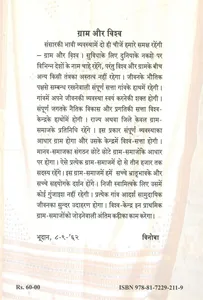 ग्राम और विश्व
संसारकी भावी व्यवस्थामें दो ही चीजें हमारे समक्ष रहेंगी
– ग्राम और विश्व । सुविधाके लिए दुनियाके नक्शे पर
विभिन्न देशों के नाम चाहे रहेंगे, परंतु विश्व और ग्रामके बीच
अन्य किसी तंत्रका अस्तत्व नहीं रहेगा । जीवनके नौतिक
पक्षसे सम्बन्ध रखनेवाली संपूर्ण सत्ता गांवके हाथमें रहेगी ।
गांवमें अपने जीवनकी व्यवस्था स्वयं करनेकी शक्त होगी ।
संपूर्ण जगतके नैतिक विकास और प्रगतिकी सत्ता विश्व-
केन्द्रके हाथोंमें होगी । राज्य अथवा जिले केवल ग्राम-
समाजके प्रतिनिधि रहेंगे । इस प्रकार संपूर्ण व्यवस्थाका
आधार ग्राम होगा और उसके केन्द्रमें विश्व-सत्ता होगी ।
मानव-समाजका संगठन छोटे छोटे ग्राम-समाजोंके आधार
पर होगा । ऐसे प्रत्येक ग्राम-समाजमें दो से तीन हजार तक
सदस्य रहेंगे । इस ग्राम-समाजमें हमें सच्चे भ्रातृभावके और
सच्चे सहयोगके दर्शन होंगे । निजी स्वामित्वके लिए उसमें
कोई गुंजाइश नहीं रहेगी । प्रत्येक गांव आदर्श सामुदायिक
जीवनका सुन्दर उदाहरण होगा । विश्व-केन्द्र इन ग्राथमिक
ग्राम-समाजोंको जोडनेवाली अंतिम कडीका काम करेगा ।
भूदान, ८-९-'६२ विनोबा
Rs. 60-00 ISBN 978-81-7229-211-9